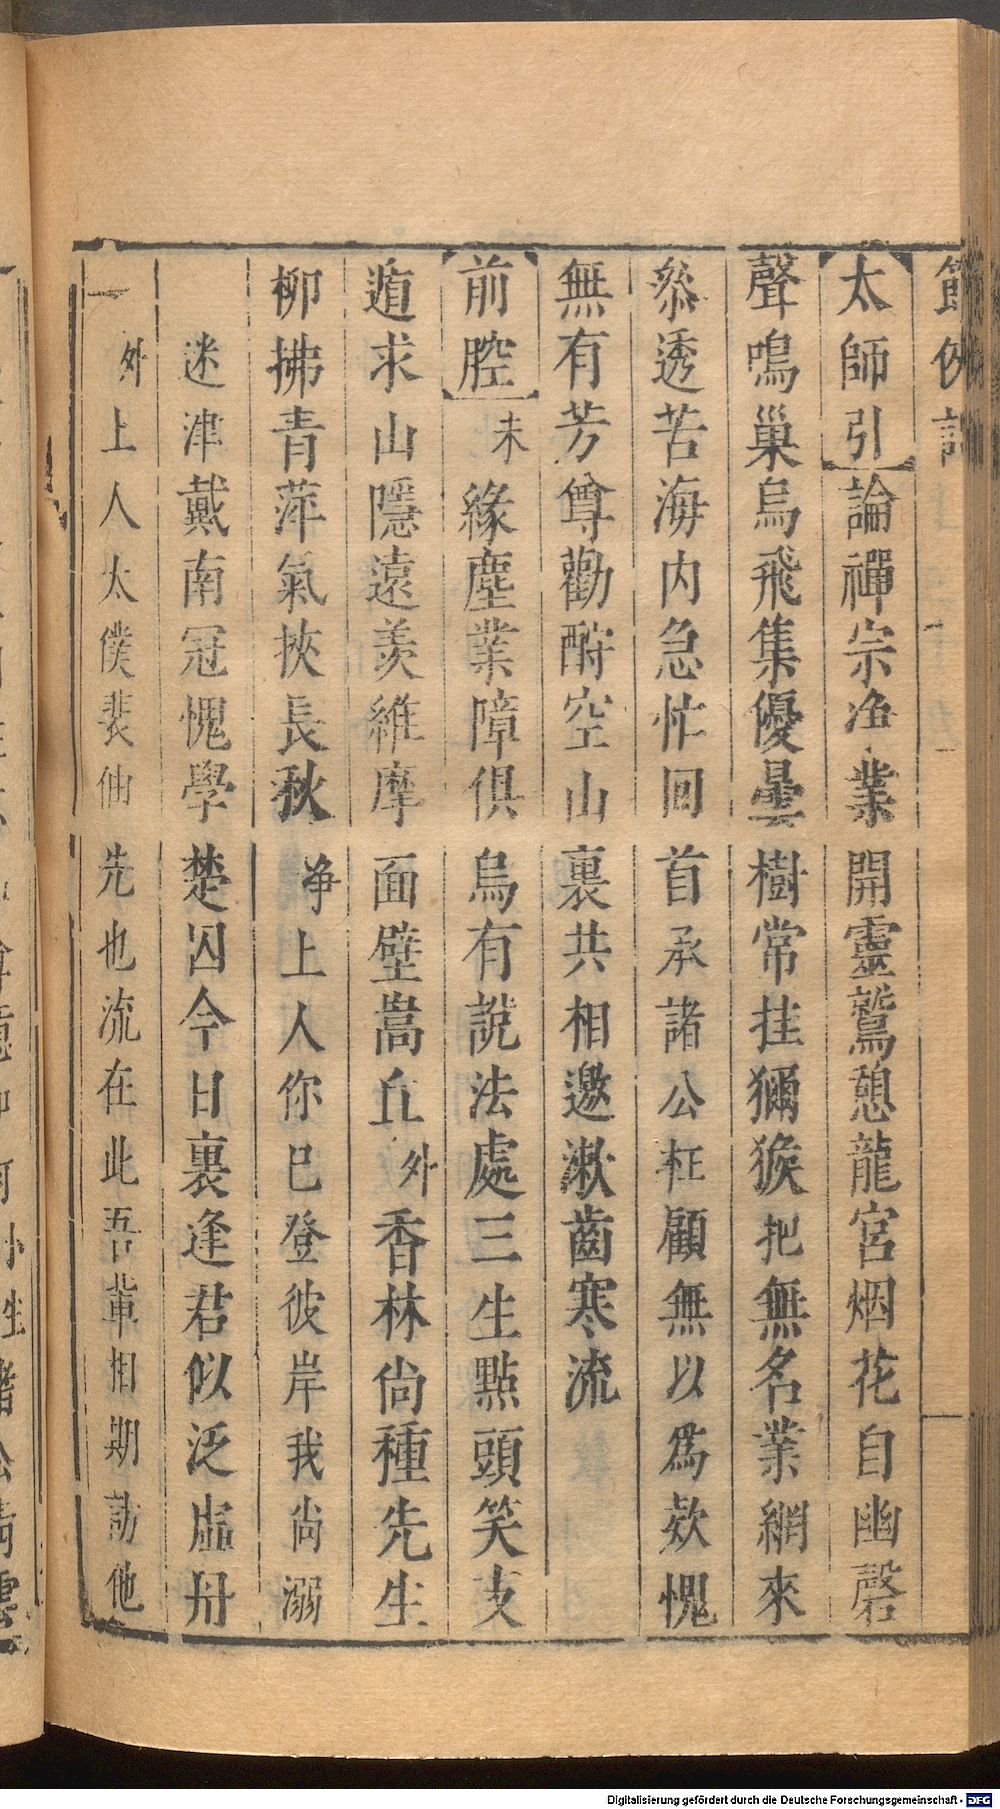 節俠記
太師引論禪宗漁業開靈鷲憩龍宮烟花自幽磬
聲鳴巢烏飛集優曇樹常挂獼猴把無名業網來
叅透苦海内急忙回首承諸公枉顧無以爲欵愧
無有芳尊勸酧空山裏共相邀漱齒寒流
前腔末緣塵業障俱烏有説法處三生點頭笑支
遁求山隱遠羡維摩面壁嵩丘外香林尙種先生
柳拂青萍氣挾長秋净上人你巳登彼岸我尚溺
迷津戴南冠愧學楚囚今日裏逢君似泛虛舟
外上人太僕裴伷先也流在此吾輩相期訪他
Digitalisierung gefördert durch die Deutsche Forschungsgemeinschaft - DFG